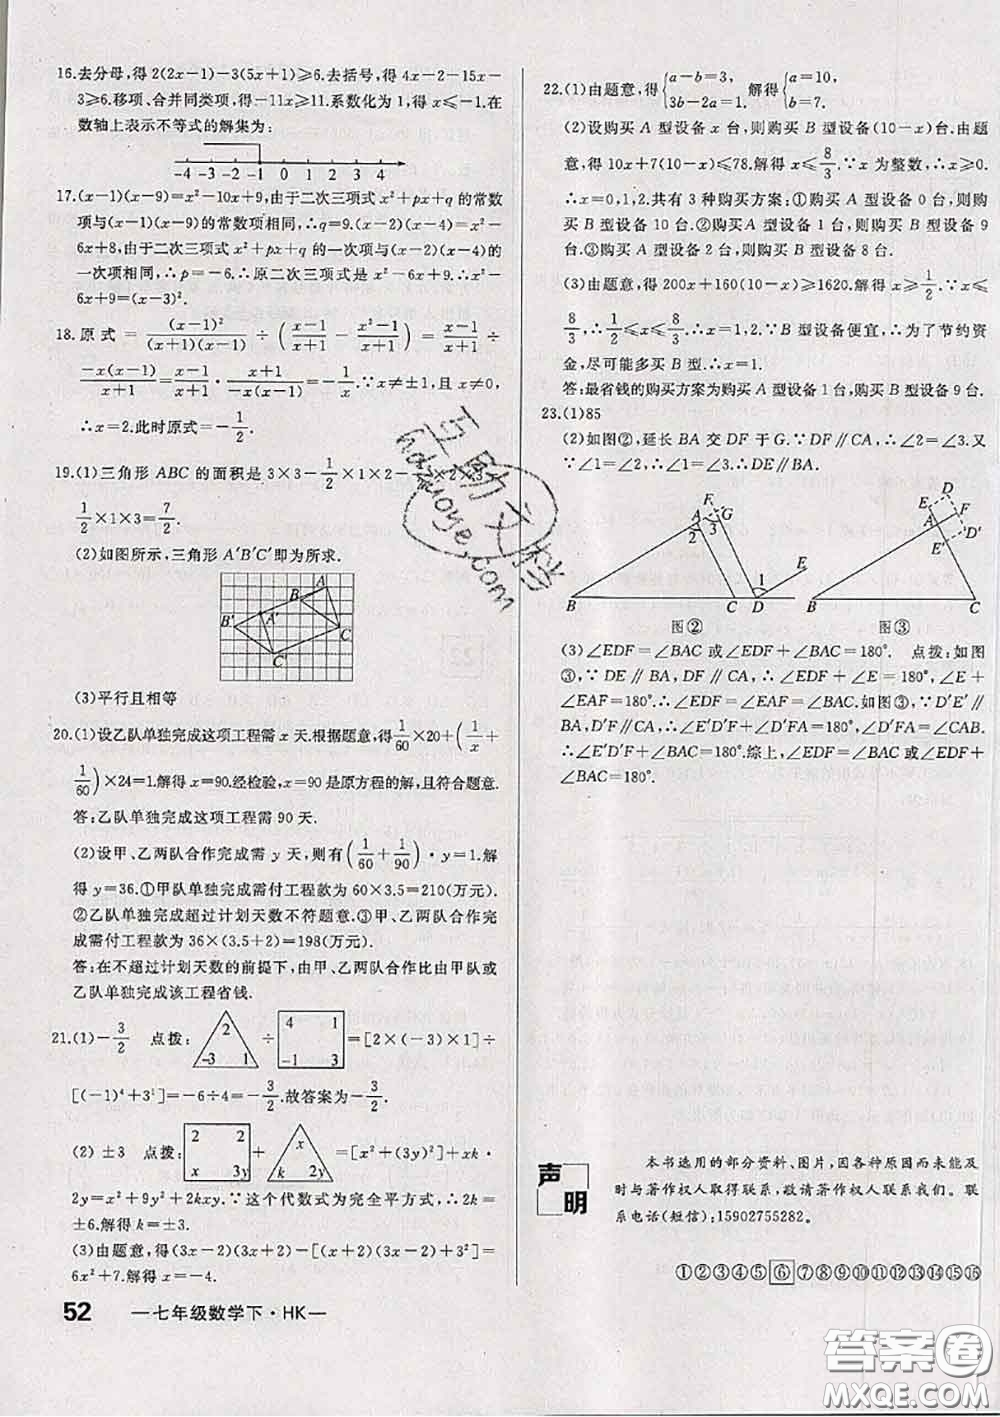 16.去分母,得 2(2x-1)-3(5x+1)⩾6.去括号,得 4x-2-15x-
3⩾6.移项、合并同类项,得-11x⩾11.系数化为 1,得 x⩽-1.在
数轴上表示不等式的解集为:
-4 -3 -2 -1 0 1 2 3 4
17.(x-1)(x-9)=x²-10x+9,由于二次三项式 x²+px+q 的常数
项与(x-1)(x-9)的常数项相同,∴q=9.(x-2)(x-4)=x²-
6x+8,由于二次三项式 x²+px+q 的一次项与(x-2)(x-4)的
一次项相同,∴p=-6.∴原二次三项式是 x²-6x+9,∴x²-
6x+9=(x-3)².
18.原式=(x-1)²/(x+1)(x-1)÷(x-1/x+1-x²-1/x+1)=x-1/x+1÷
-x(x-1)/x+1=x-1/x+1·x+1/-x(x-1)=-1/x.∵x≠±1,且 x≠0,
∴x=2.此时原式=-1/2.
19.(1)三角形 ABC 的面积是 3×3-1/2×1×2-1/2×2×3-
1/2×1×3=7/2.
(2)如图所示,三角形 A′B′C′即为所求.
A
B
B′
A′
C
C′
(3)平行且相等
20.(1)设乙队单独完成这项工程需 x 天.根据题意,得1/60×20+(1/x+
1/60)×24=1.解得 x=90.经检验,x=90 是原方程的解,且符合题意.
答:乙队单独完成这项工程需 90 天.
(2)设甲、乙两队合作完成需 y 天,则有(1/60+1/90)·y=1.解
得 y=36.①甲队单独完成需付工程款为 60×3.5=210(万元).
②乙队单独完成超过计划天数不符题意.③甲、乙两队合作完
成需付工程款为 36×(3.5+2)=198(万元).
答:在不超过计划天数的前提下,由甲、乙两队合作比由甲队或
乙队单独完成该工程省钱.
21.(1)-3/2 点拨: 2 -3 1 ÷ 4 1 -1 3 =[2×(-3)×1]÷
[(-1)⁴+3¹]=-6÷4=-3/2.故答案为-3/2.
(2) ±3 点拨: 2 2 x 3y + x k 2y =[x²+(3y)²]+xk·
2y=x²+9y²+2kxy.∵这个代数式为完全平方式,∴2k=
±6.解得 k=±3.
(3)由题意,得(3x-2)(3x-2)-[(x+2)(3x-2)+3²]=
6x²+7.解得 x=-4.
52 —七年级数学下·HK—
22.(1)由题意,得{a-b=3, 3b-2a=1. 解得{a=10, b=7.
(2)设购买 A 型设备 x 台,则购买 B 型设备(10-x)台.由题
意,得 10x+7(10-x)⩽78.解得 x⩽8/3.∵x 为整数,∴x⩾0.
∴x=0,1,2.∴共有 3 种购买方案:①购买 A 型设备 0 台,购
买 B 型设备 10 台.②购买 A 型设备 1 台,购买 B 型设备 9
台.③购买 A 型设备 2 台,购买 B 型设备 8 台.
(3)由题意,得 200x+160(10-x)⩾1620.解得 x⩾1/2.∵x⩽
8/3,∴1/2⩽x⩽8/3,∴x=1,2.∵B 型设备便宜,∴为了节约资
金,尽可能多买 B 型.∴x=1.
答:最省钱的购买方案为购买 A 型设备 1 台,购买 B 型设备 9 台.
23.(1)85
(2)如图②,延长 BA 交 DF 于 G.∵DF∥CA,∴∠2=∠3.又
∵∠1=∠2,∴∠1=∠3.∴DE∥BA.
F
A
G
2
3
1
E
B
C
D
图②
D
E
F
A
E′
D′
B
C
图③
(3)∠EDF=∠BAC 或∠EDF+∠BAC=180°. 点拨:如图
③,∵DE∥BA,DF∥CA,∴∠EDF+∠E=180°,∠E+
∠EAF=180°.∴∠EDF=∠EAF=∠BAC.如图③,∵D′E′∥
BA,D′F∥CA,∴∠E′D′F+∠D′FA=180°,∠D′FA=∠CAB.
∴∠E′D′F+∠BAC=180°.综上,∠EDF=∠BAC 或∠EDF+
∠BAC=180°.
声明
本书选用的部分资料、图片,因各种原因而未能及
时与著作权人取得联系,敬请著作权人联系我们。联
系电话(短信):15902755282。
①②③④⑤⑥⑦⑧⑨⑩⑪⑫⑬⑭⑮⑯
互助文档
hdzuoye.com
答案卷
MXQE.COM